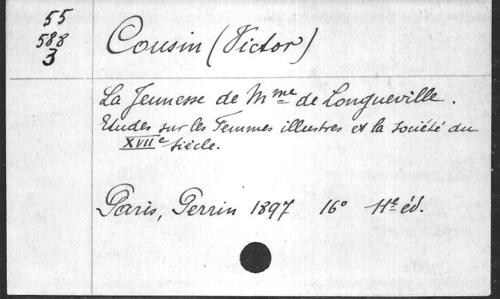 55
588
3
Cousin (Victor)
La Jeunesse de Mme de Longueville.
Etudes sur les Femmes illustres et la société du
XVIIe siècle.
Paris, Perrin 1897 16° 11e éd.